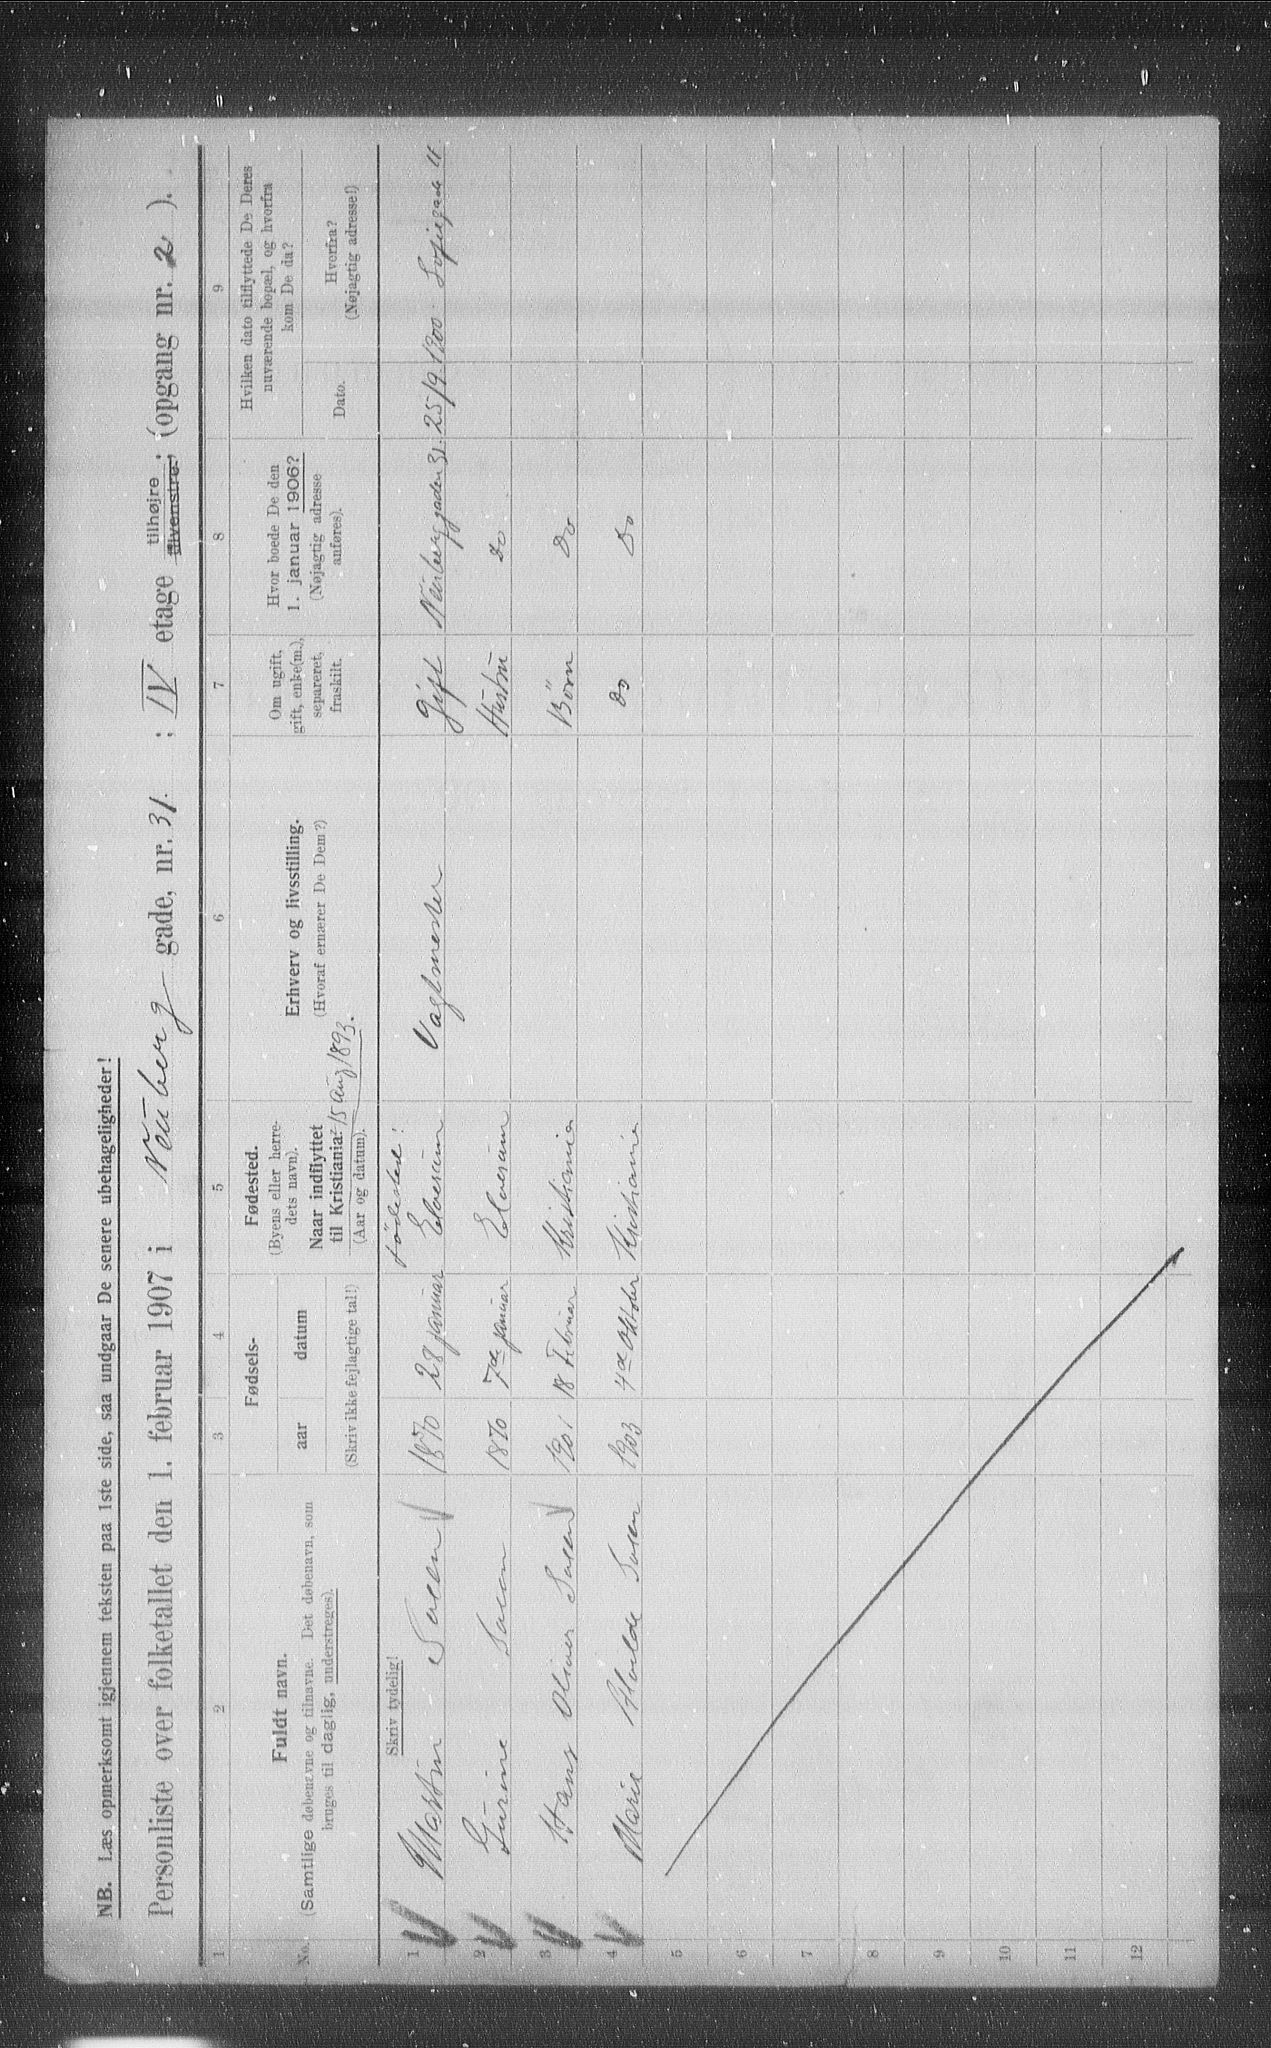 NB. Læs opmerksomt igjennem teksten paa 1ste side, saa undgaar De senere ubehageligheder!
Personliste over folketallet den 1. februar 1907 i Neuberg gade, nr. 31. ; IV etage tilhøjre tilvenstre, (opgang nr. 2).
1 2 3 4 5 6 7 8 9
No. Fuldt navn.
(Samtlige døbenavne og tilnavne. Det døbenavn, som
bruges til daglig, understreges).
Fødsels-
aar datum
(Skriv ikke fejlagtige tal!)
Fødested.
(Byens eller herre-
dets navn).
Naar indflyttet
til Kristiania? 15 Aug 1893.
(Aar og datum).
Erhverv og livsstilling.
(Hvoraf ernærer De Dem?)
Om ugift,
gift, enke(m.),
separeret,
fraskilt.
Hvor boede De den
1. januar 1906?
(Nøjagtig adresse
anføres).
Hvilken dato tilflyttede De Deres
nuværende bopæl, og hvorfra
kom De da?
Dato. Hvorfra?
(Nøjagtig adresse!)
Skriv tydelig! Fødested!
1 Martin 1870 28 januar Elverum Vagtmester Gift Neuberggaden 31. 25/9 1900 Sofiegade
2 Gurine 1870 7de januar Elverum Hustru Do
3 Hans Oliver 1901 18 Februar Kristiania Børn Do
4 Marie 1903 4de Oktober Kristiania Do Do
5
6
7
8
9
10
11
12